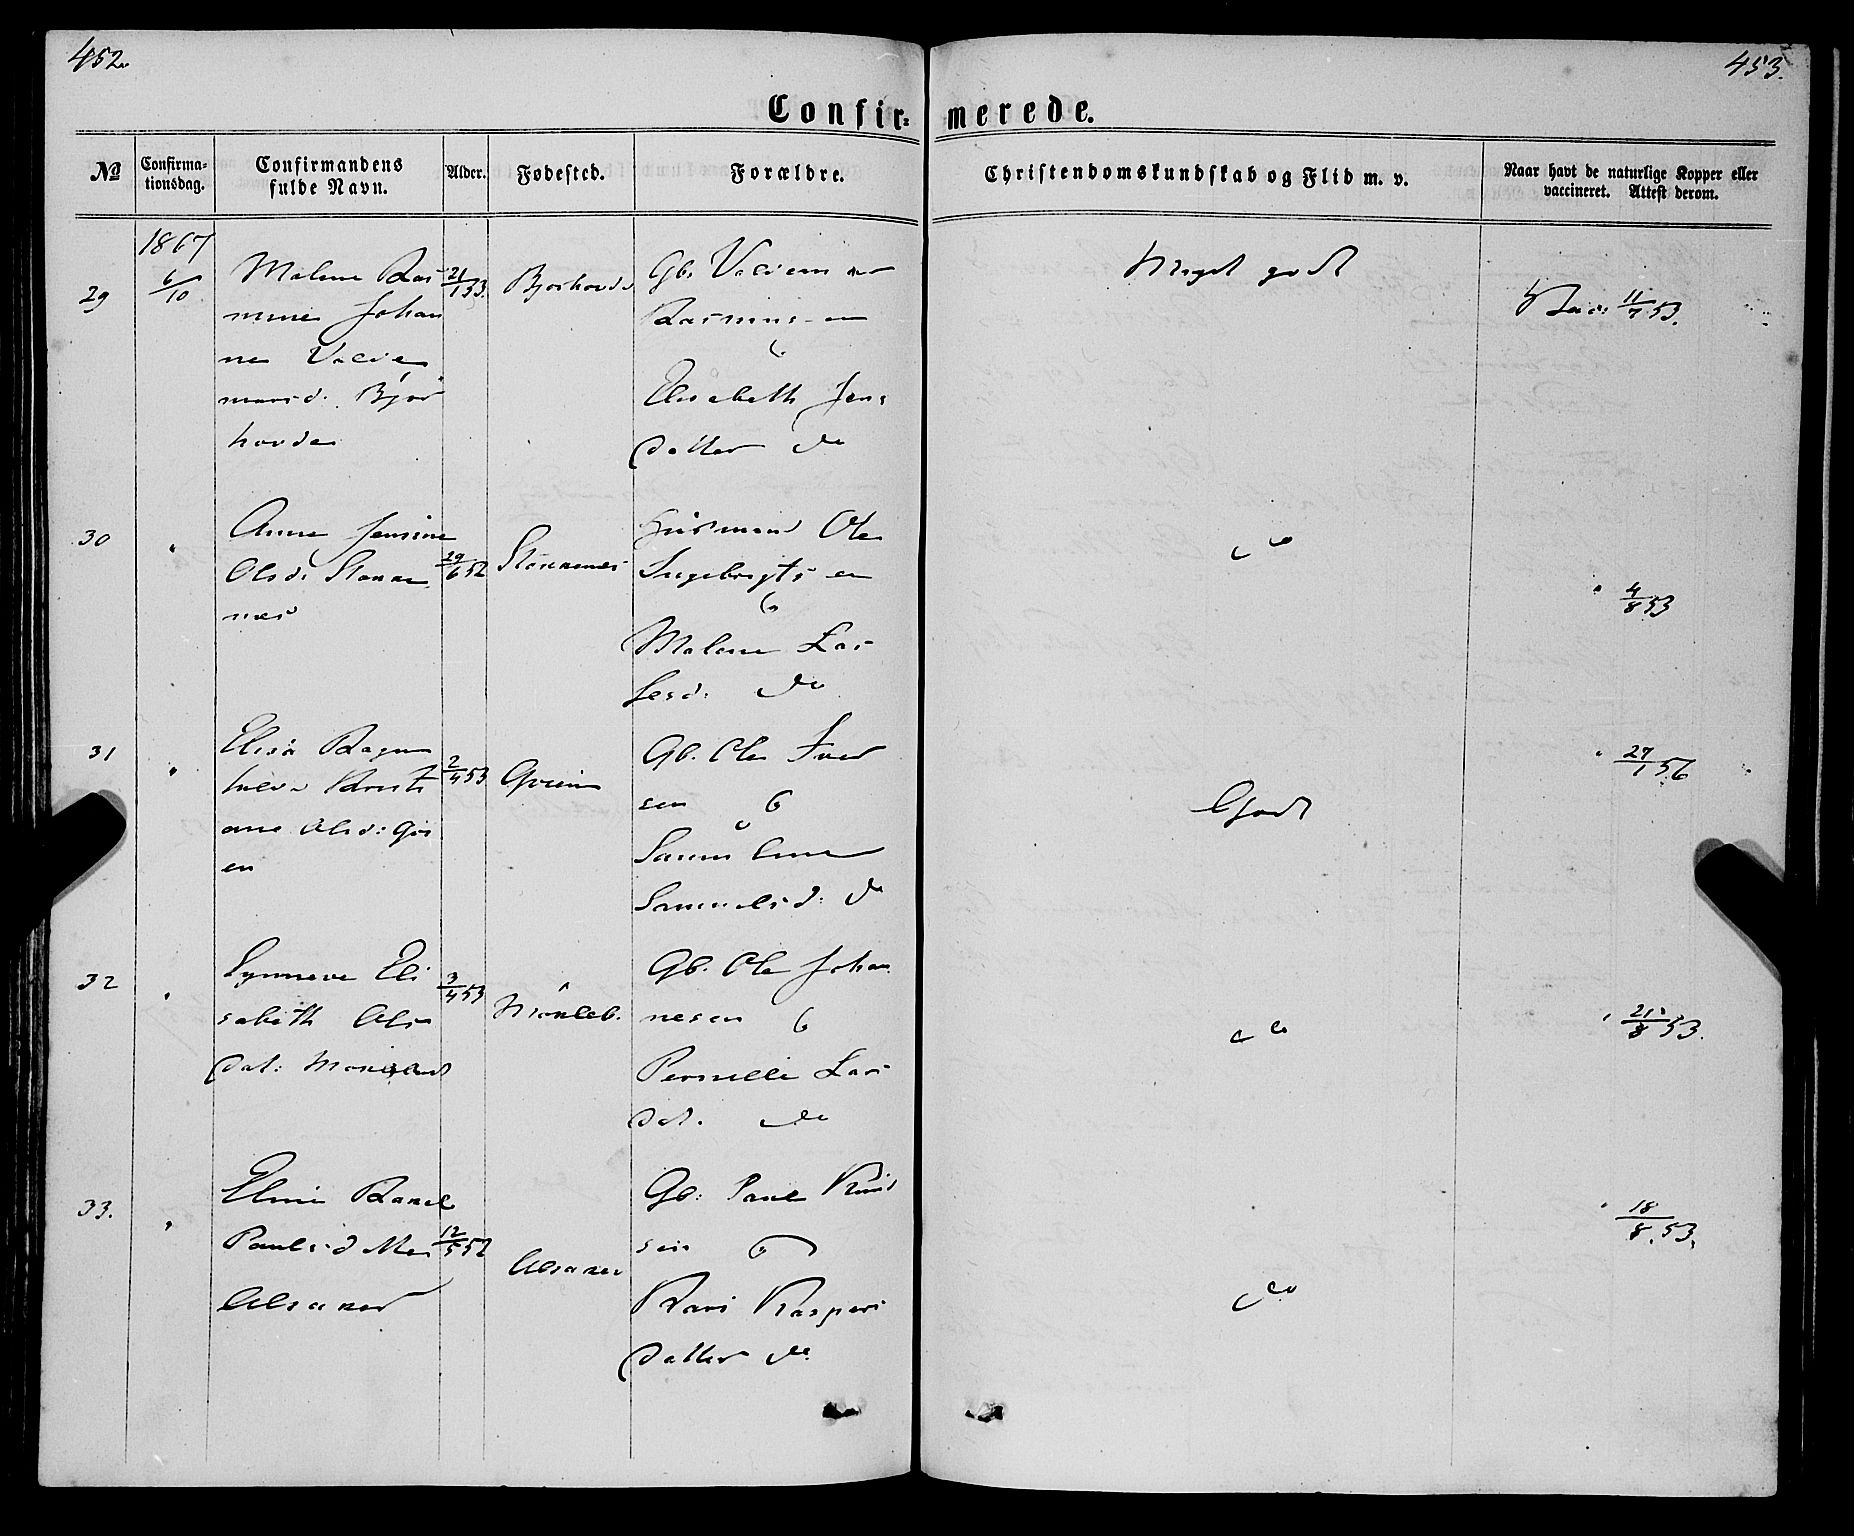 452.
453.
Confir= merede.
No
Confirma-
tionsdag.
Confirmandens
fulde Navn.
Alder.
Fødested.
Forældre.
Christendomskundskab og Flid m. v.
Naar havt de naturlige Kopper eller
vaccineret. Attest derom.
1867
29
6/10
Malene Ras
mine Johan
ne Valde
marsd. Bjor
hovde
21/1 53.
Bjorhovde
Gb. Valdemar
Rasmussen
&
Elisabeth Jens
datter do
Meget godt
Vac: 11/7 53.
30
"
Anne Jensine
Olsd: Stonge
nes
29/6 52
Husmand Ole
Ingebrigtsen
&
Malene Las
sesd: do
do
" 4/8 53
31
"
Elisa Ragn
hild Kristi
ane Olsd:
en
2/4 53
Gb. Ole Iver
sen &
Samuelsd: do
Godt
" 27/1 56
32
"
Synneve Eli
sabeth Ols
dat:
3/4 53
Gb. Ole Johan
nesen &
Pernille Lars
dat. do
do
" 21/8 53.
33.
"
Rakel
Paulsd
Alsaker
12/5 52
Alsaker
Gb: Paul Knud
sen &
Kari Kaspers
datter do
do
" 18/8. 53.